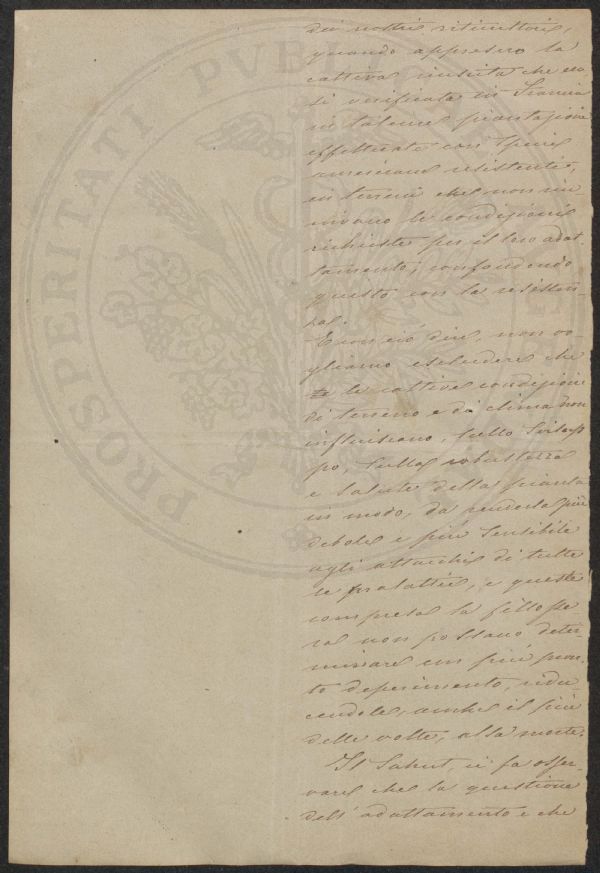 PROSPERITATI PVBLI
dei nostri viticultori,
quando appresero la
cattiva riuscita che era
si verificata in Francia
in talune piantagioni
effettuate con specie
americane resistenti,
in terreni che non riu
nivano le condizioni
richieste per il loro adat
tamento; confondendo
questo con la resisten-
za.
E con ciò dire, non vo
gliamo escludere che
le cattive condizioni
di terreno e di clima non
influiscano, sullo svilup
po, sulla robustezza
e salute della pianta
in modo, da renderla più
debole e più sensibile
agli attacchi di tutte
le malattie, e queste
compresa la fillosse
ra non possano deter
minare un più pron
to deperimento, ridu
cendole, anche il più
delle volte, alla morte.
Il Sahut, ci fa osser-
vare che la questione
dell'adattamento e che